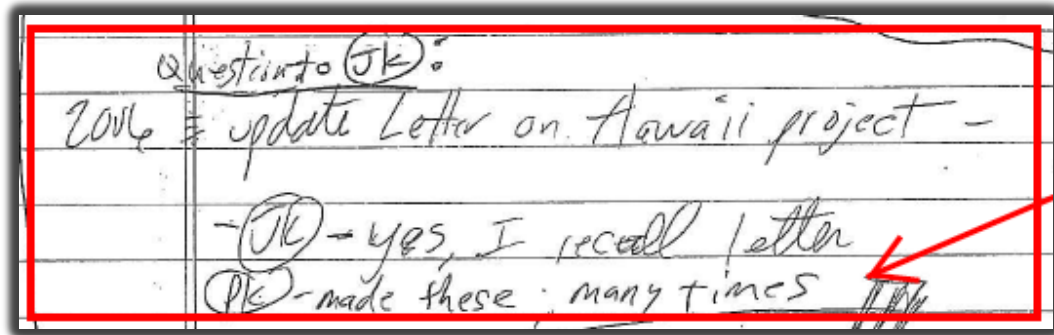 Question to JK:
2006 = update Letter on Hawaii project -
- JK - yes, I recall letter
PK - made these many times